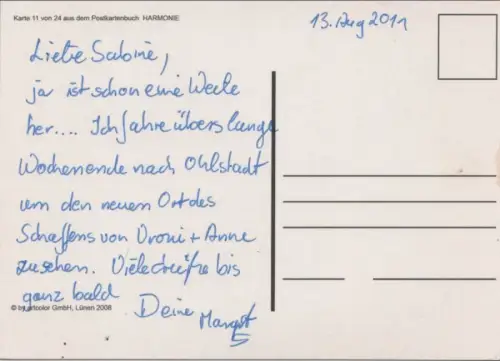 Karte 11 von 24 aus dem Postkartenbuch HARMONIE
13. Aug 2011
Liebe Sabine,
ja ist schon eine Weile
her.... Ich fahre übers lange
Wochenende nach Ohlstadt
um den neuen Ort des
Schaffens von Vroni + Anne
zu sehen. Viele Grüße bis
ganz bald
© by artcolor GmbH, Lünen 2008
Deine Margot